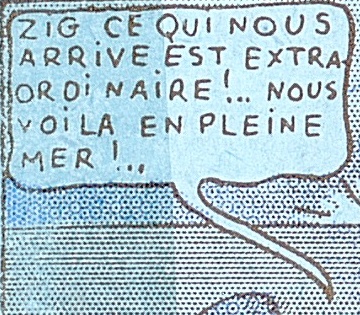 ZIG CE QUI NOUS
ARRIVE EST EXTRA-
ORDINAIRE!.. NOUS
VOILA EN PLEINE
MER!..